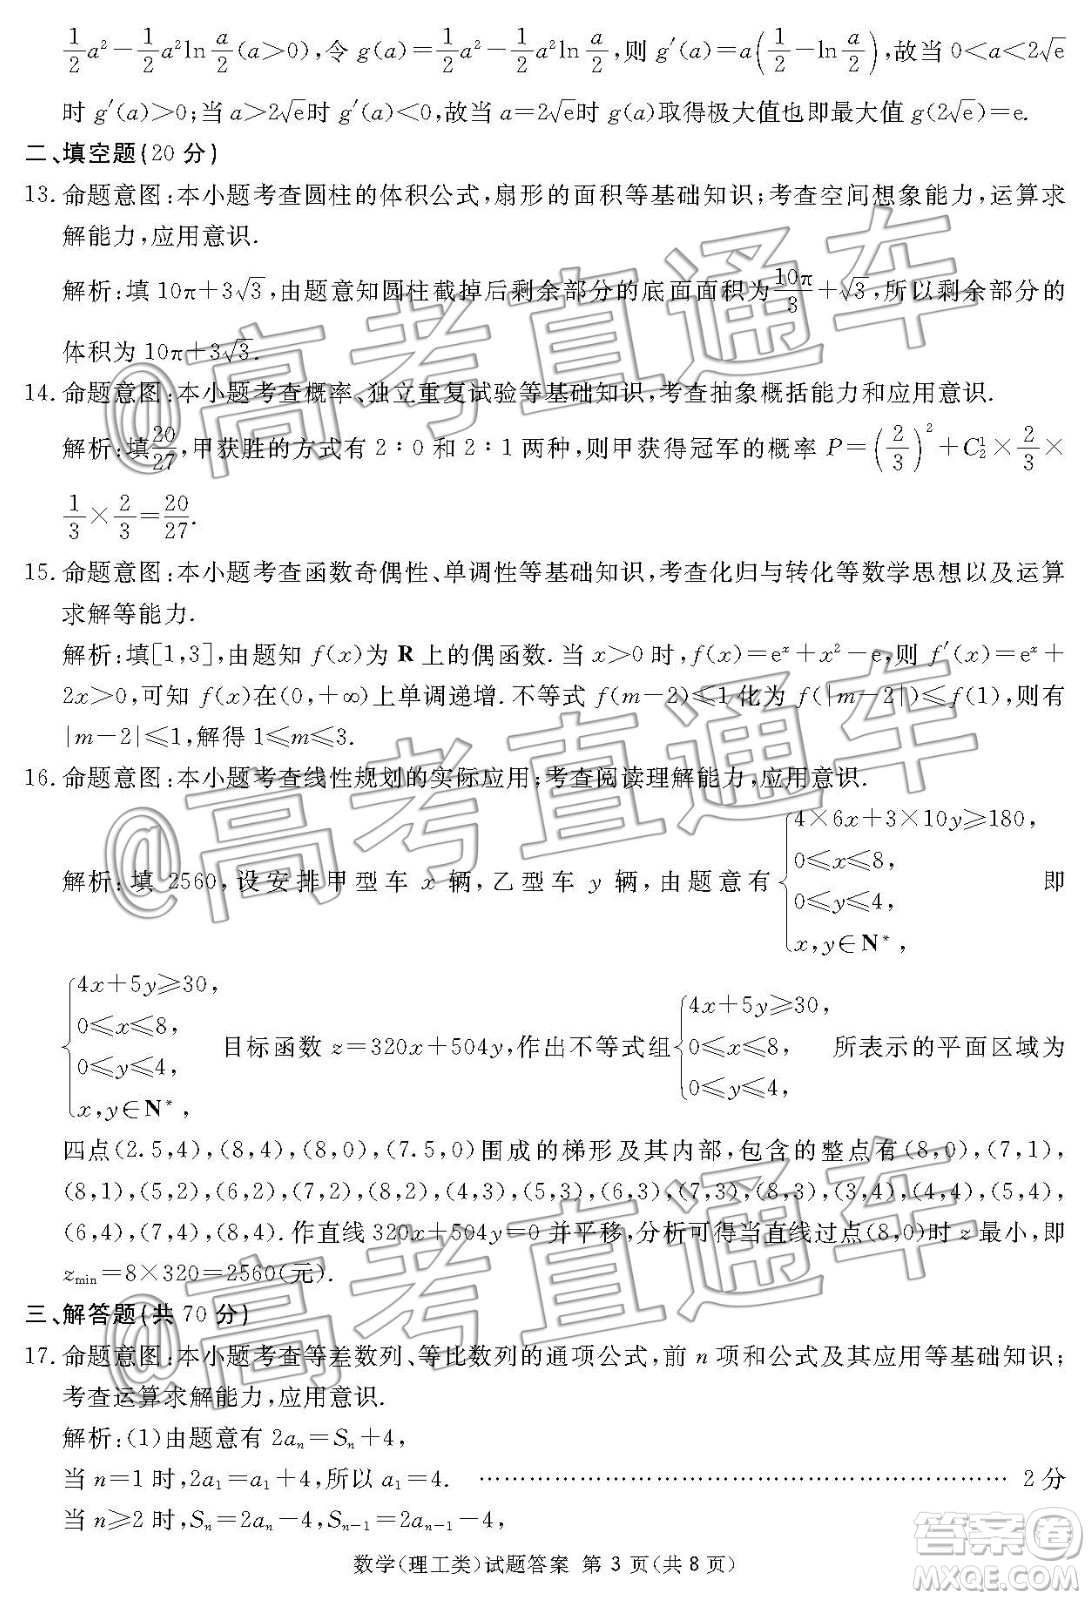 1/2 a²－1/2 a²ln a/2 (a＞0),令 g(a)＝1/2 a²－1/2 a²ln a/2,则 g′(a)＝a(1/2－ln a/2),故当 0＜a＜2√e
时 g′(a)＞0;当 a＞2√e时 g′(a)＜0,故当 a＝2√e时 g(a)取得极大值也即最大值 g(2√e)＝e.
二、填空题(20 分)
13. 命题意图:本小题考查圆柱的体积公式,扇形的面积等基础知识;考查空间想象能力,运算求
解能力,应用意识.
解析:填 10π＋3√3,由题意知圆柱截掉后剩余部分的底面面积为10π/3＋√3,所以剩余部分的
体积为 10π＋3√3.
14. 命题意图:本小题考查概率、独立重复试验等基础知识,考查抽象概括能力和应用意识.
解析:填20/27,甲获胜的方式有 2∶0 和 2∶1 两种,则甲获得冠军的概率 P＝(2/3)²＋C₂¹×2/3×
1/3×2/3＝20/27.
15. 命题意图:本小题考查函数奇偶性、单调性等基础知识,考查化归与转化等数学思想以及运算
求解等能力.
解析:填[1,3],由题知 f(x)为 R 上的偶函数.当 x＞0 时,f(x)＝eˣ＋x²－e,则 f′(x)＝eˣ＋
2x＞0,可知 f(x)在(0,＋∞)上单调递增.不等式 f(m－2)≤1 化为 f(|m－2|)≤f(1),则有
|m－2|≤1,解得 1≤m≤3.
16. 命题意图:本小题考查线性规划的实际应用;考查阅读理解能力,应用意识.
解析:填 2560,设安排甲型车 x 辆,乙型车 y 辆,由题意有{4×6x＋3×10y≥180, 0≤x≤8, 0≤y≤4, x,y∈N*, 即
{4x＋5y≥30, 0≤x≤8, 0≤y≤4, x,y∈N*, 目标函数 z＝320x＋504y,作出不等式组{4x＋5y≥30, 0≤x≤8, 0≤y≤4, 所表示的平面区域为
四点(2.5,4),(8,4),(8,0),(7.5,0)围成的梯形及其内部,包含的整点有(8,0),(7,1),
(8,1),(5,2),(6,2),(7,2),(8,2),(4,3),(5,3),(6,3),(7,3),(8,3),(3,4),(4,4),(5,4),
(6,4),(7,4),(8,4).作直线 320x＋504y＝0 并平移,分析可得当直线过点(8,0)时 z 最小,即
zmin＝8×320＝2560(元).
三、解答题(共 70 分)
17. 命题意图:本小题考查等差数列、等比数列的通项公式,前 n 项和公式及其应用等基础知识;
考查运算求解能力,应用意识.
解析:(1)由题意有 2aₙ＝Sₙ＋4,
当 n＝1 时,2a₁＝a₁＋4,所以 a₁＝4. ………………………………………………………… 2 分
当 n≥2 时,Sₙ＝2aₙ－4,Sₙ₋₁＝2aₙ₋₁－4,
数学(理工类)试题答案 第 3 页(共 8 页)
@高考直通车
@高考直通车
@高考直通车
答案卷
MXQE.COM